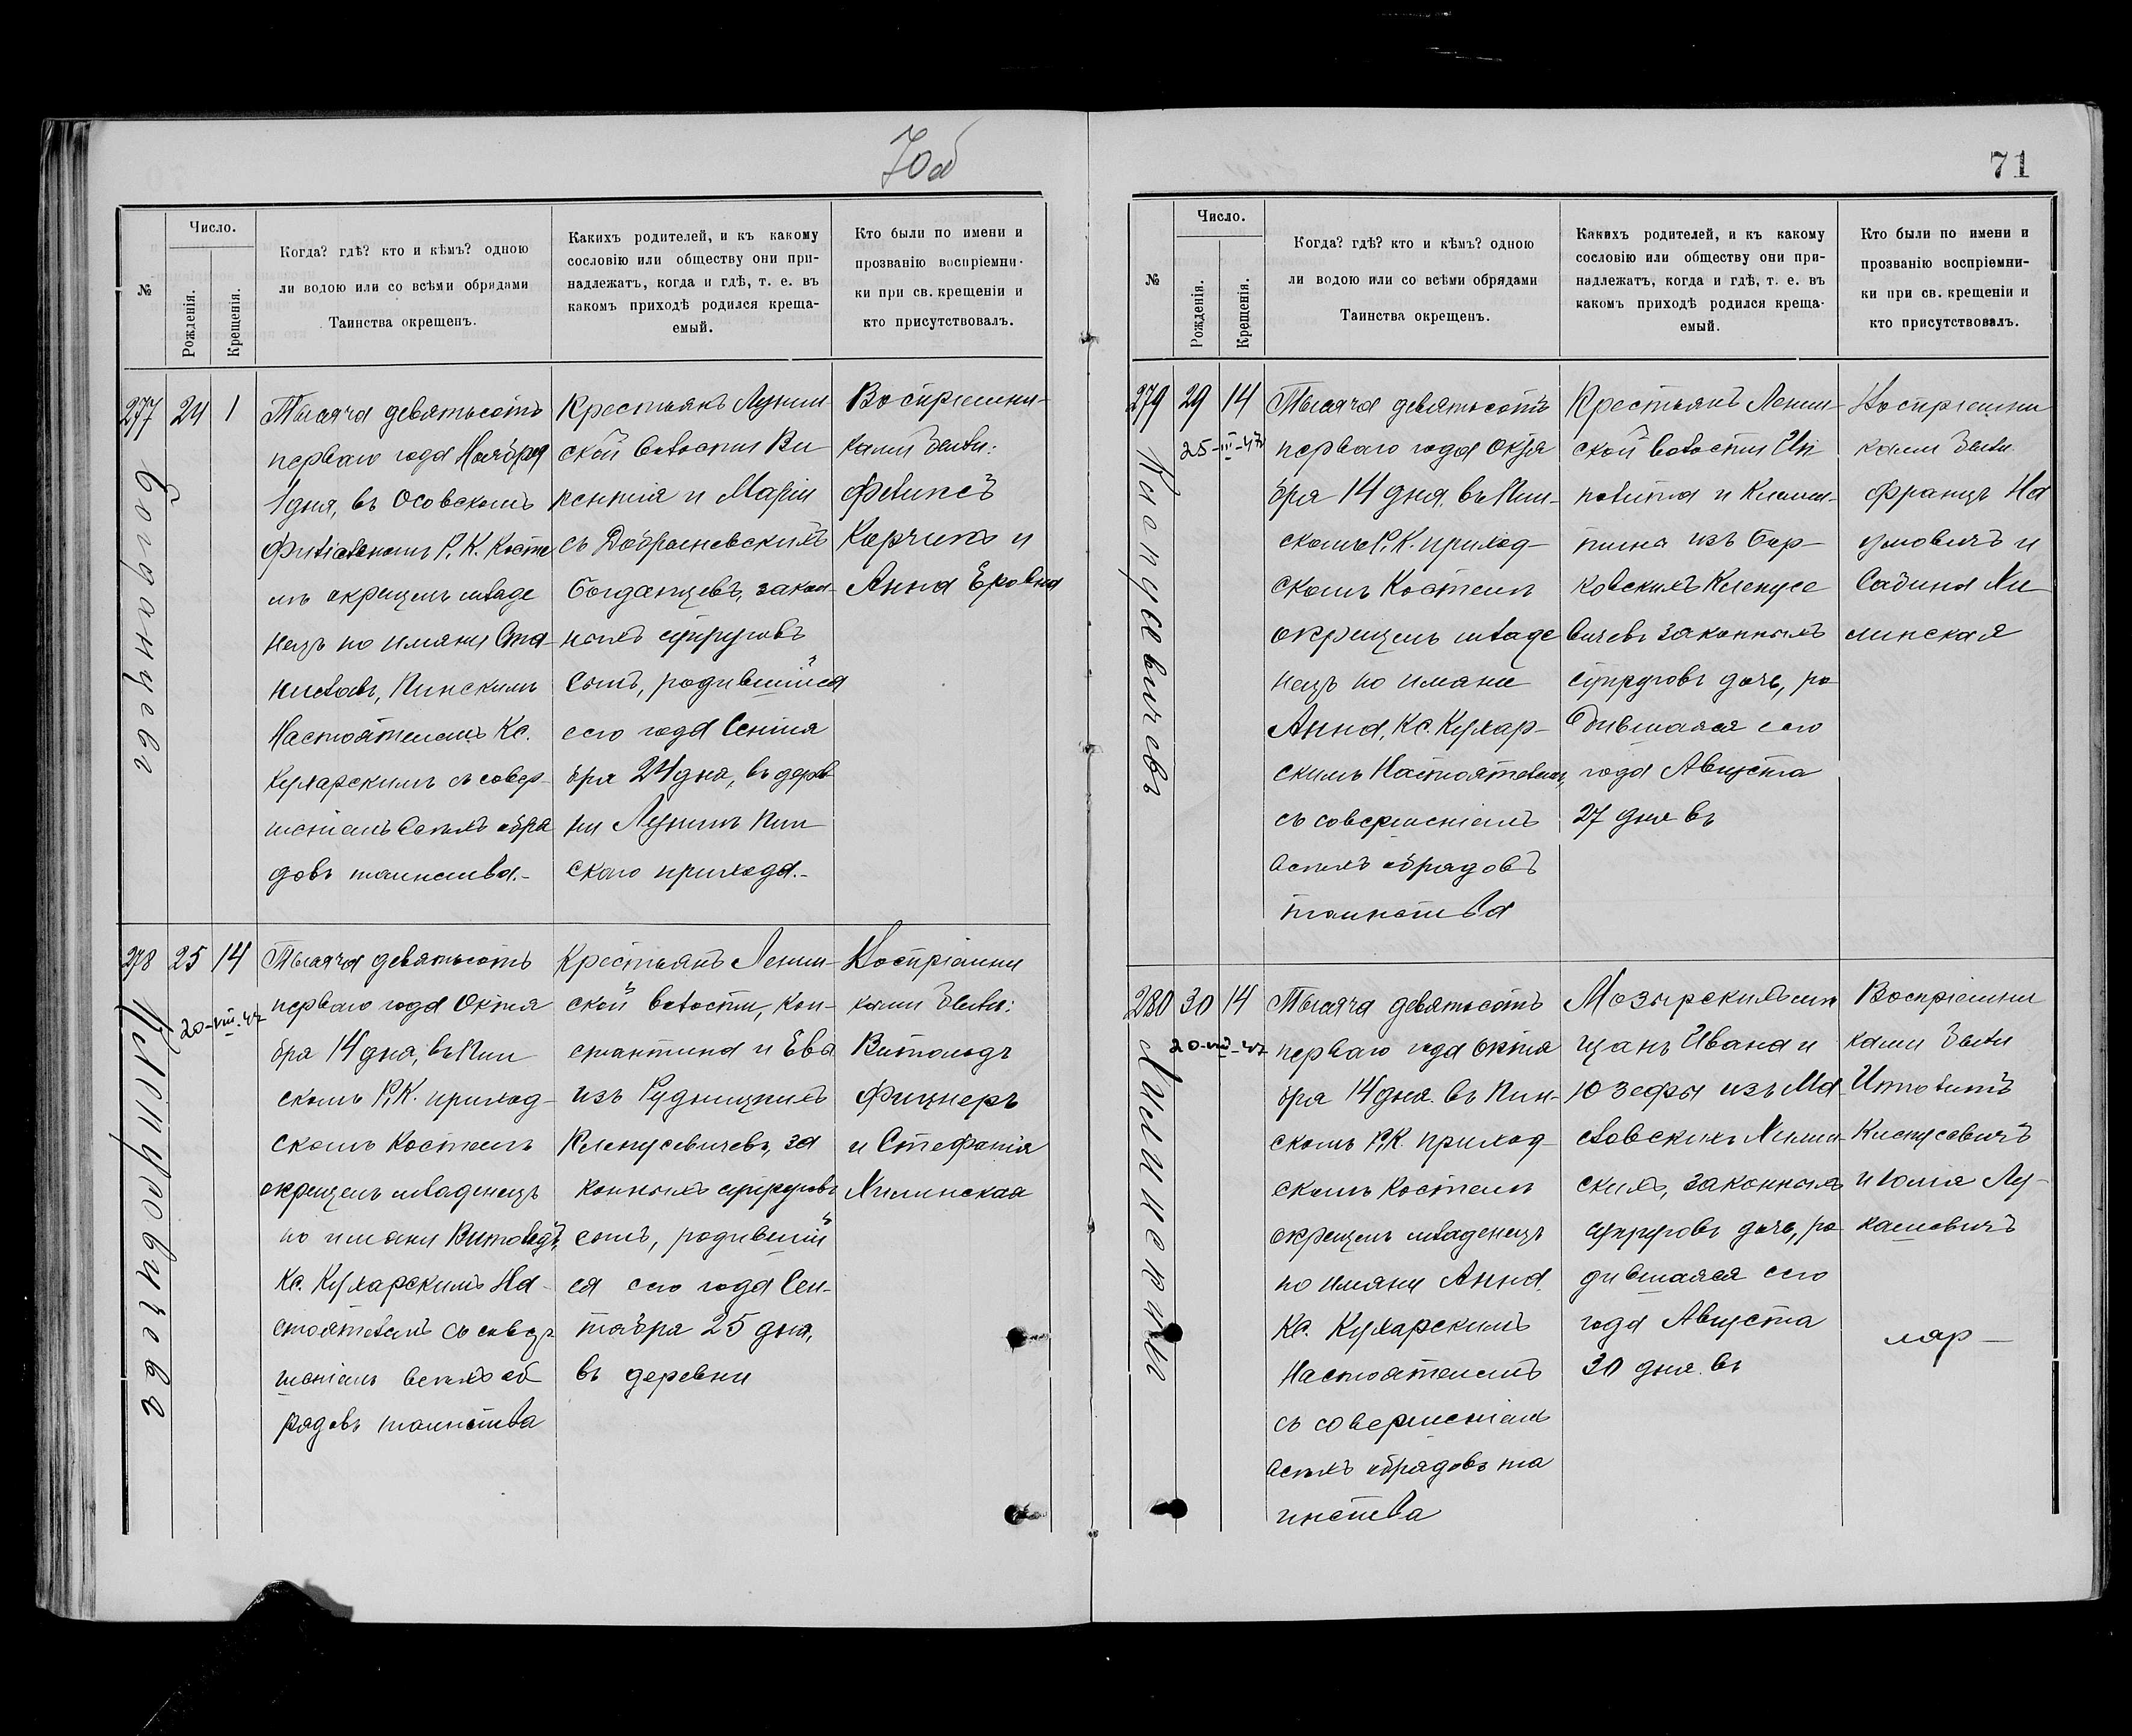 70об
Число.
№
Рожденія.
Крещенія.
Когда? гдѣ? кто и кѣмъ? одною
ли водою или со всѣми обрядами
Таинства окрещенъ.
Какихъ родителей, и къ какому
сословію или обществу они при-
надлежатъ, когда и гдѣ, т. е. въ
какомъ приходѣ родился креща-
емый.
Кто были по имени и
прозванію воспріемни-
ки при св. крещеніи и
кто присутствовалъ.
277
24
1
Богданцевъ
Тысяча девятьсотъ
перваго года Ноября
1 дня, въ Осовскомъ
Филіальномъ Р. К. Косте
лѣ окрещенъ младе
нецъ по имяни Ста-
ниславъ, Пинскимъ
Настоятелемъ Кс.
Кухарскимъ съ совер-
шеніемъ всѣхъ обря
довъ таинства.-
Крестьянъ Лунин-
ской волости Ви
кентія и Маріи
съ
Богданцевъ, закон-
ныхъ супруговъ
сынъ, родившійся
сего года Сентя
бря 24 дня, въ дерев
ни Лунинъ Пин
скаго прихода.-
Воспріемни-
ками были:
Филипсъ
Корчикъ и
Анна
278
25
14
20-VIII-47
Тысяча девятьсотъ
перваго года Октя
бря 14 дня, въ Пин
скомъ Р. К. приход-
скомъ Костелѣ
окрещенъ младенецъ
по имяни Витольдъ,
Кс. Кухарскимъ На-
стоятелемъ съ совер
шеніемъ всѣхъ об
рядовъ таинства
Крестьянъ Ленин-
ской волости, Кон-
стантина и Евы
изъ Рудницкихъ
Клепусевичевъ, за
конныхъ супруговъ
сынъ, родившій
ся сего года Сен-
тября 25 дня,
въ деревни
Воспріемни
ками были:
Витольдъ
Фицнеръ
и Стефанія
Хилинская
71
Число.
№
Рожденія.
Крещенія.
Когда? гдѣ? кто и кѣмъ? одною
ли водою или со всѣми обрядами
Таинства окрещенъ.
Какихъ родителей, и къ какому
сословію или обществу они при-
надлежатъ, когда и гдѣ, т. е. въ
какомъ приходѣ родился креща-
емый.
Кто были по имени и
прозванію воспріемни-
ки при св. крещеніи и
кто присутствовалъ.
279
29
14
25-III-47
Тысяча девятьсотъ
перваго года Октя
бря 14 дня, въ Пин-
скомъ Р. К. приход-
скомъ Костелѣ
окрещенъ младе
нецъ по имяни
Анна, Кс. Кухар-
скимъ Настоятелемъ,
съ совершеніемъ
всѣхъ обрядовъ
таинства
Крестьянъ Ленин-
ской волости Ип
полита и
изъ Бор-
ковскихъ Клепусе
вичевъ законныхъ
супруговъ дочь, ро
дившаяся сего
года Августа
27 дня въ
Воспріемни
ками были
Францъ На
умовичъ и
Сабина Хи
линская
280
30
14
Хилинскій
Тысяча девятьсотъ
перваго года Октя
бря 14 дня въ Пин-
скомъ Р. К. приход-
скомъ Костелѣ
окрещенъ младенецъ
по имяни Анна,
Кс. Кухарскимъ
Настоятелемъ
съ совершеніемъ
всѣхъ обрядовъ та
инства
Мозырскихъ мѣ
щанъ Ивана и
Юзефы изъ Ма
Хилин-
скихъ, законныхъ
супруговъ дочь, ро
дившаяся сего
года Августа
30 дня въ
Воспріемни
ками были
Ипполитъ
Клепусевичъ
и Юлія Лу-
кашевичъ